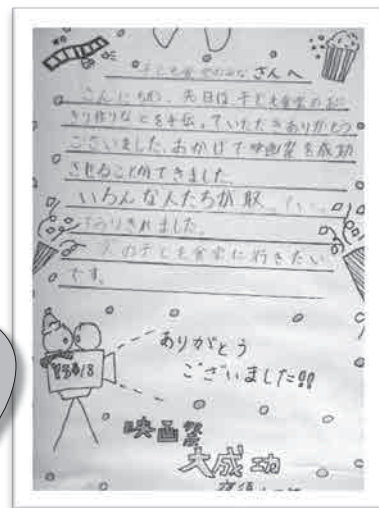 子ども食堂のみなさんへ
こんにちは、先日は子ども食堂のおに
ぎり作りなどを手伝っていただきありがとう
ございました。おかげで映画祭を成功
させることができました。
いろんな人たちが
ました。
の子ども食堂に行きたい
です。
ありがとう
ございました!!
映画祭
大成功